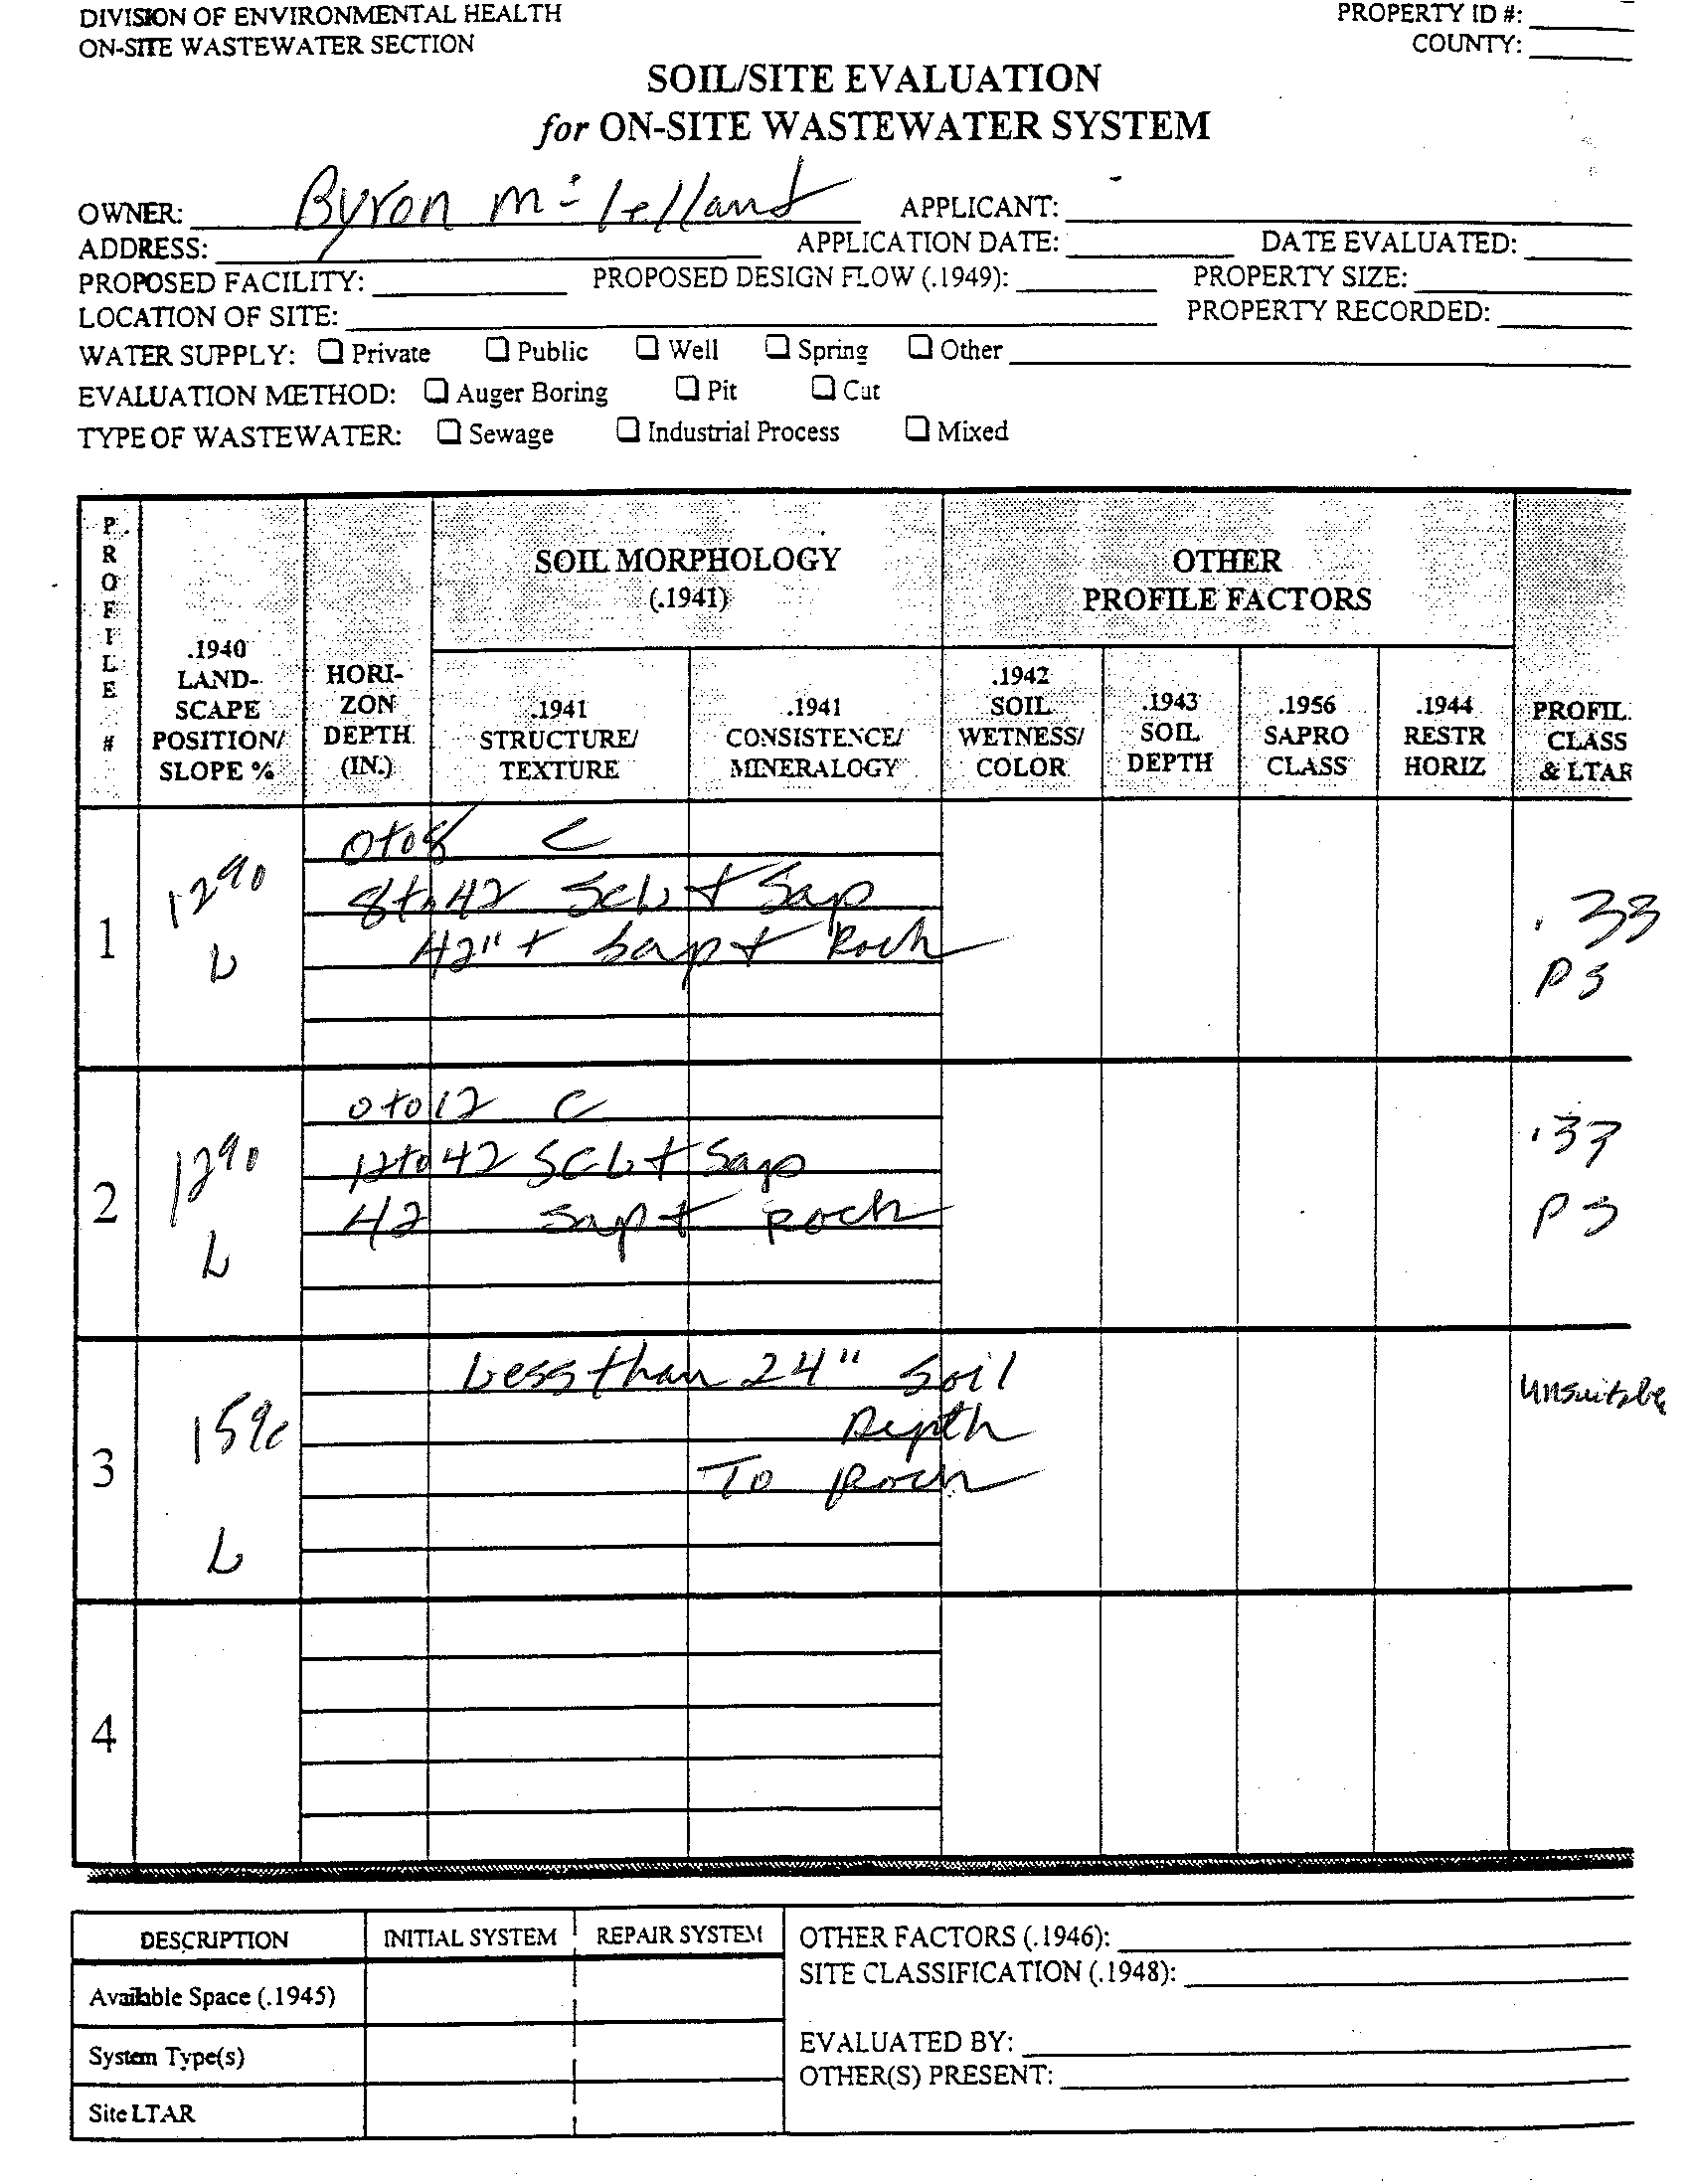 DIVISION OF ENVIRONMENTAL HEALTH
ON-SITE WASTEWATER SECTION
PROPERTY ID #:
COUNTY:
SOIL/SITE EVALUATION
for ON-SITE WASTEWATER SYSTEM
OWNER: Byron McLelland APPLICANT:
ADDRESS: APPLICATION DATE: DATE EVALUATED:
PROPOSED FACILITY: PROPOSED DESIGN FLOW (.1949): PROPERTY SIZE:
LOCATION OF SITE: PROPERTY RECORDED:
WATER SUPPLY: Private Public Well Spring Other
EVALUATION METHOD: Auger Boring Pit Cut
TYPE OF WASTEWATER: Sewage Industrial Process Mixed
PROFILE #
.1940 LAND-SCAPE POSITION/ SLOPE %
HORI-ZON DEPTH (IN.)
SOIL MORPHOLOGY
(.1941)
.1941 STRUCTURE/ TEXTURE
.1941 CONSISTENCE/ MINERALOGY
OTHER
PROFILE FACTORS
.1942 SOIL WETNESS/ COLOR
.1943 SOIL DEPTH
.1956 SAPRO CLASS
.1944 RESTR HORIZ
PROFIL. CLASS & LTAR
1
12%
L
0 to 8 C
8 to 42 SCL + Sap
42"+ Sap + Rock
.33
PS
2
12%
L
0 to 12 C
12 to 42 SCL + Sap
42 Sap + Rock
.33
PS
3
15%
L
Less than 24" Soil
Depth
To Rock
Unsuitable
4
DESCRIPTION INITIAL SYSTEM REPAIR SYSTEM
Available Space (.1945)
System Type(s)
Site LTAR
OTHER FACTORS (.1946):
SITE CLASSIFICATION (.1948):
EVALUATED BY:
OTHER(S) PRESENT: